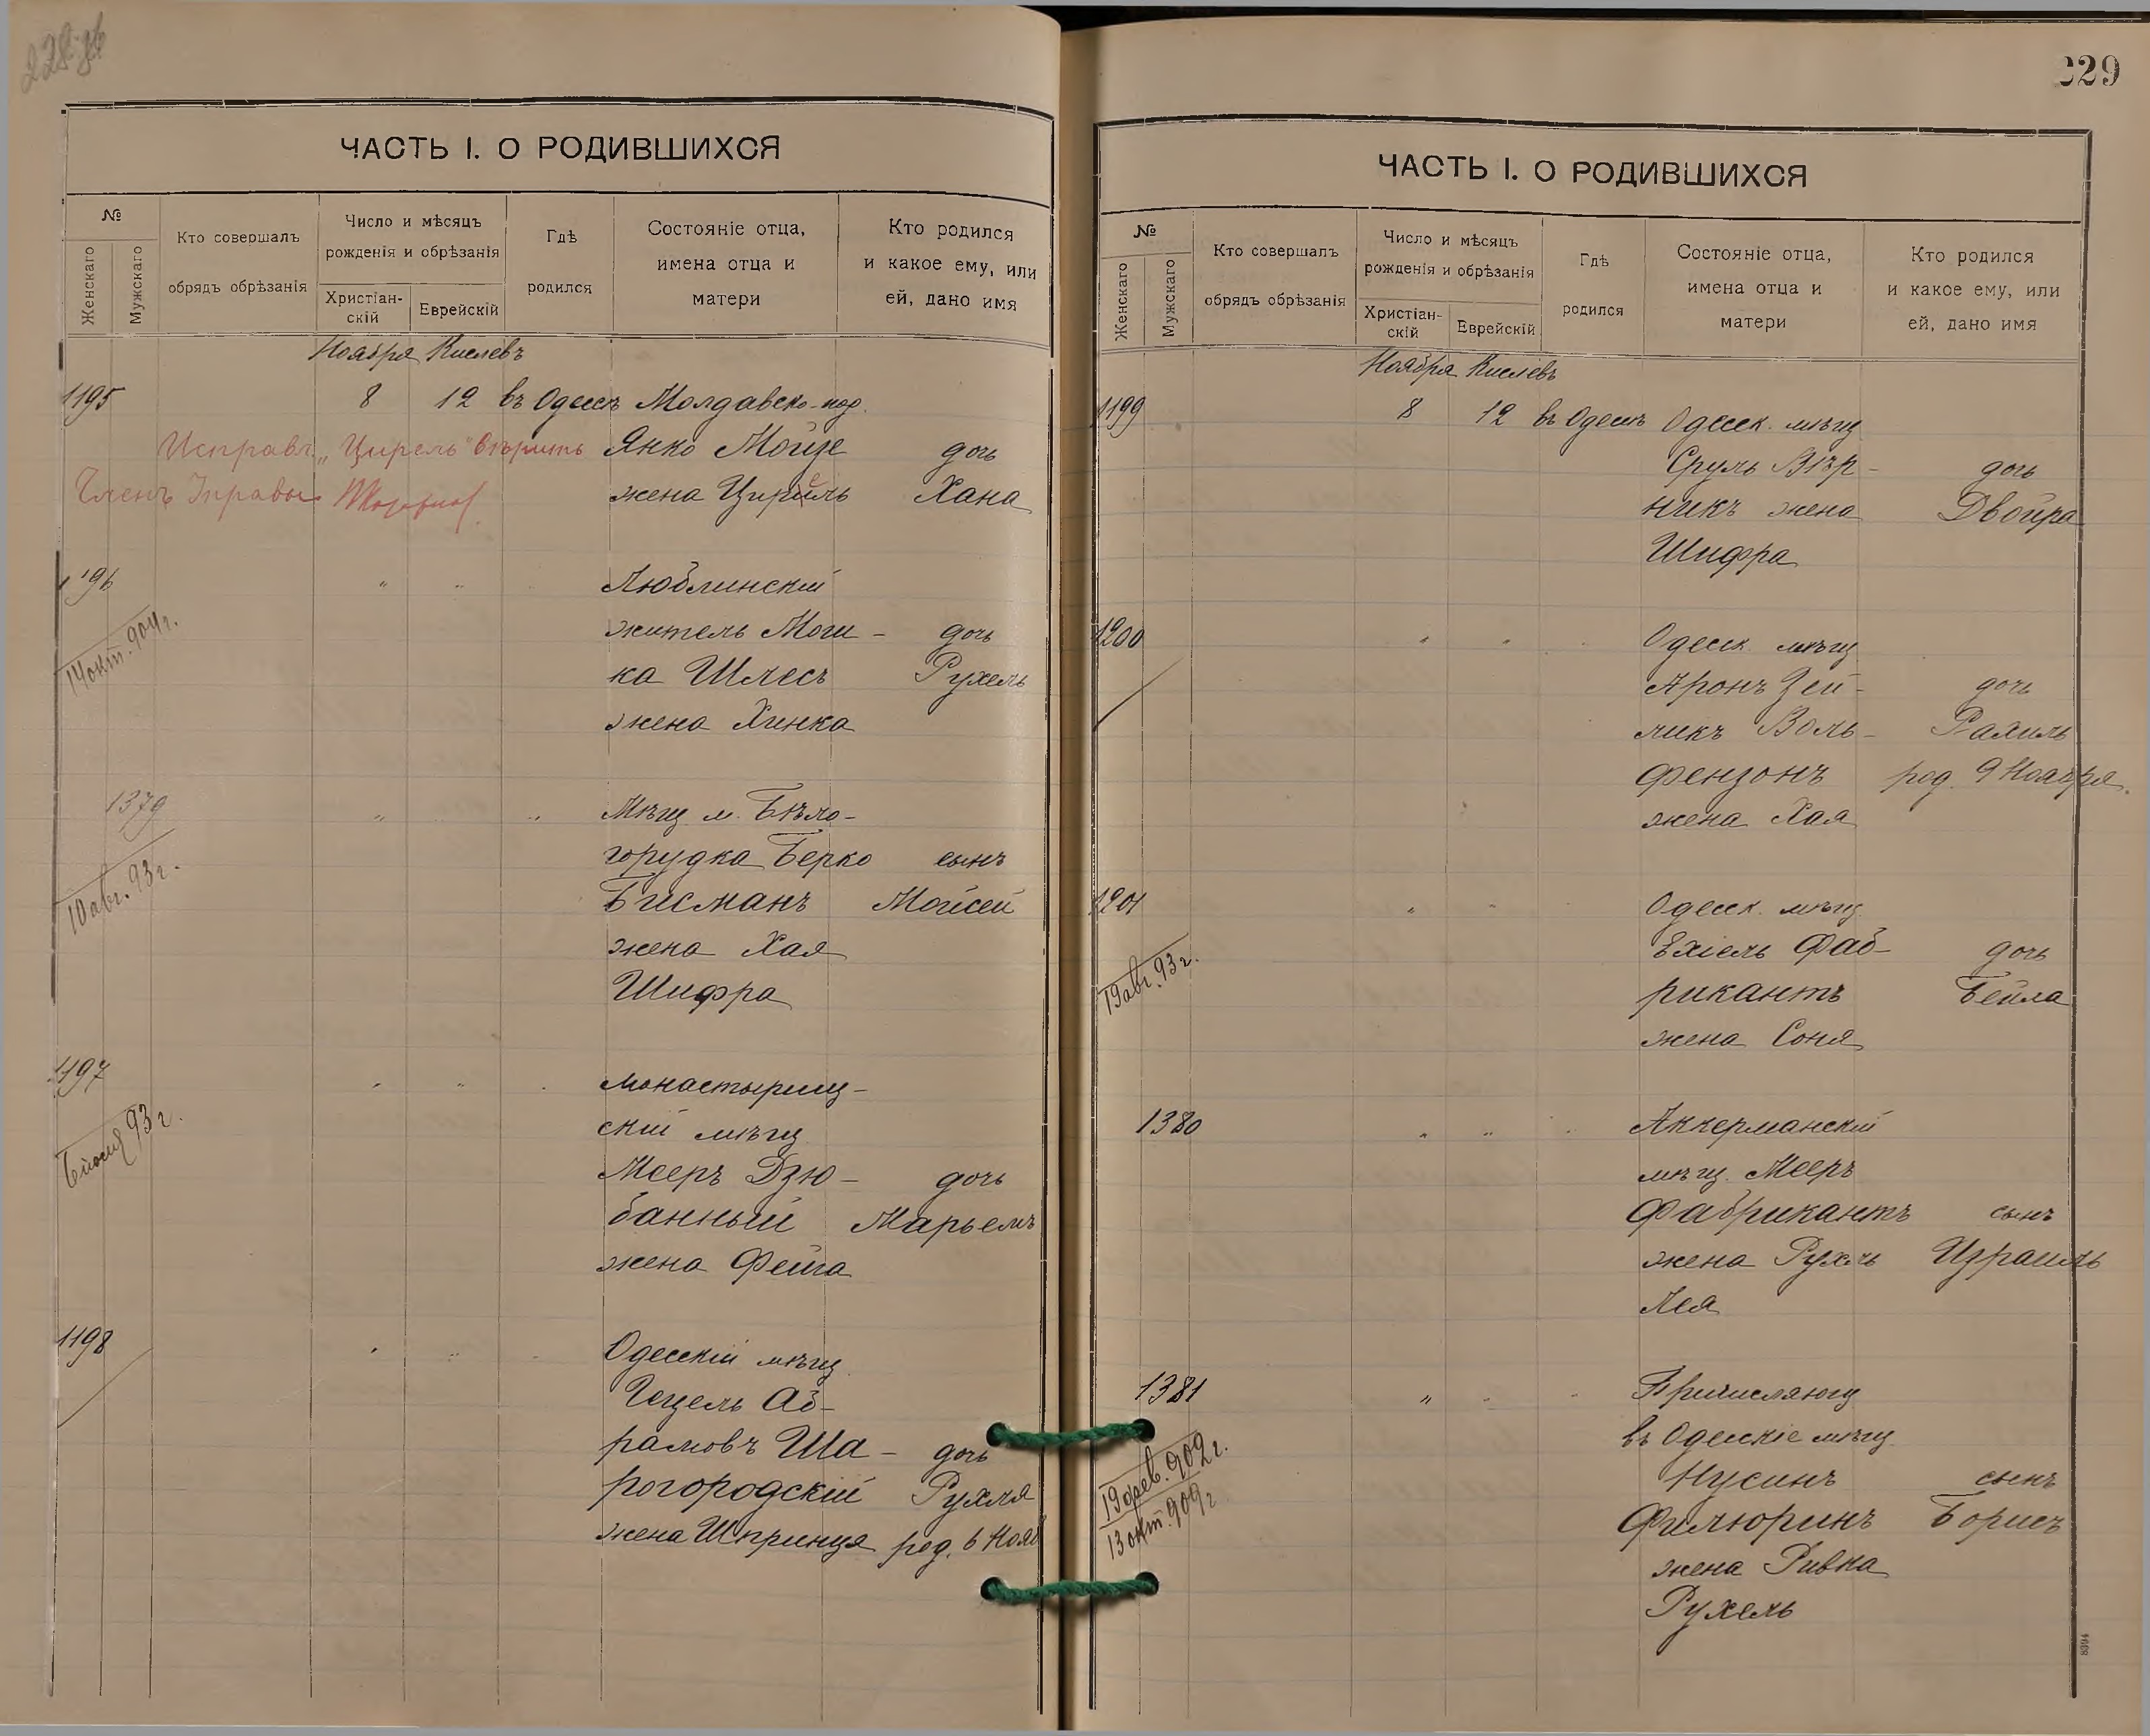 ЧАСТЬ I. О РОДИВШИХСЯ
№
Женскаго
Мужскаго
Кто совершалъ
обрядъ обрѣзанія
Число и мѣсяцъ
рожденія и обрѣзанія
Христіан-
скій
Еврейскій
Гдѣ
родился
Состояніе отца,
имена отца и
матери
Кто родился
и какое ему, или
ей, дано имя
Ноября Кислевъ
1195 8 12 въ Одессѣ Молдавско-под.
Исправл. „Цирель" вѣрить Янко Мойзе дочь
Членъ Управы жена Цирель Хана
1196 " " Люблинскій
14 окт. 904 г. житель Мош- дочь
ка Шлесъ Рухель
жена Хинка
1379 " " Мѣщ. м. Бѣло-
10 авг. 93 г. горудка Берко сынъ
Бисманъ Мойсей
жена Хая
Шифра
1197 " " монастырищ-
93 г. скій мѣщ.
Мееръ Дзю- дочь
банный Марьемъ
жена Фейга
1198 " " Одесскій мѣщ.
Гецель Аб-
рамовъ Ша- дочь
рогородскій Рухля
жена Шпринця род. 6 Нояб
229
ЧАСТЬ I. О РОДИВШИХСЯ
№
Женскаго
Мужскаго
Кто совершалъ
обрядъ обрѣзанія
Число и мѣсяцъ
рожденія и обрѣзанія
Христіан-
скій
Еврейскій
Гдѣ
родился
Состояніе отца,
имена отца и
матери
Кто родился
и какое ему, или
ей, дано имя
Ноября Кислевъ
1199 8 12 въ Одессѣ Одесск. мѣщ
Сруль Вѣр- дочь
никъ жена Двойра
Шифра
1200 " " Одесск. мѣщ
Аронъ Зей- дочь
ликъ Воль- Рахиль
фензонъ род. 9 Ноября.
жена Хая
1201 " " Одесск. мѣщ.
Ехіель Фаб- дочь
19 авг. 93 г. рикантъ Бейла
жена Соня
1380 " " Аккерманскій
мѣщ. Мееръ
Фабрикантъ сынъ
жена Рухль Израиль
Лея
1381 " " Причисляющ
въ Одесскіе мѣщ.
19 фев. 902 г. Нусинъ сынъ
13 окт. 909 г Филюринъ Борисъ
жена Ривка
Рухель
8394